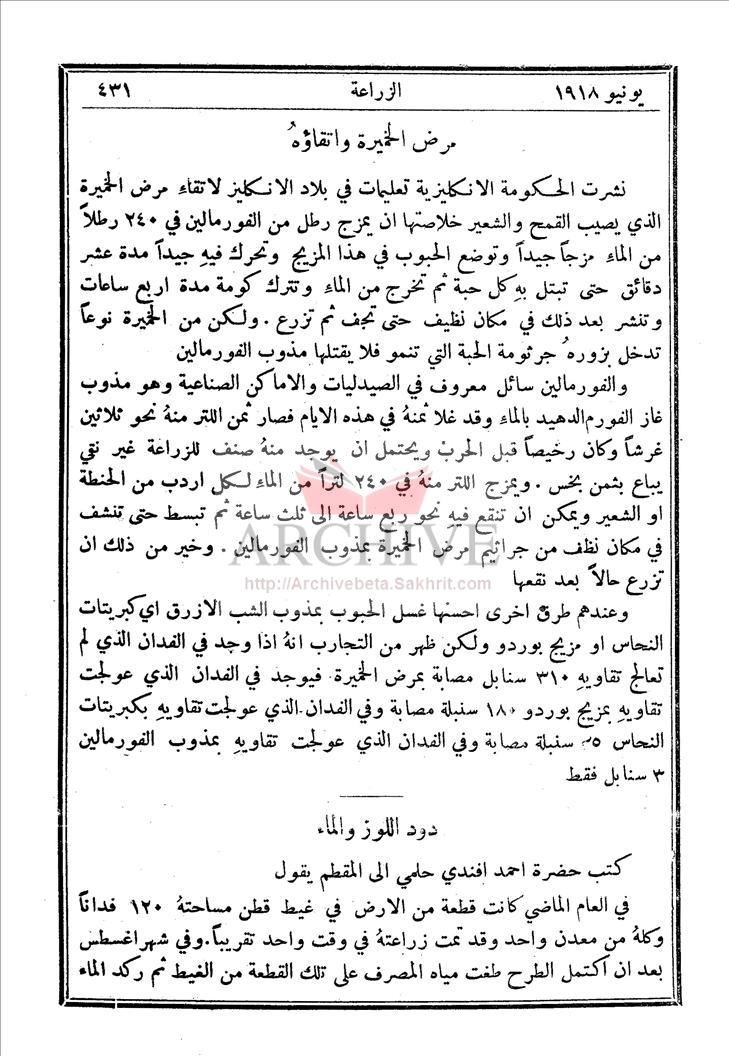 يونيو ١٩١٨ الزراعة ٤٣١
مرض الخميرة واتقاؤهُ
نشرت الحكومة الانكليزية تعليمات في بلاد الانكليز لاتقاء مرض الخميرة
الذي يصيب القمح والشعير خلاصتها ان يمزج رطل من الفورمالين في ٢٤٠ رطلاً
من الماء مزجاً جيداً وتوضع الحبوب في هذا المزيج وتحرك فيهِ جيداً مدة عشر
دقائق حتى تبتل بهِ كل حبة ثم تخرج من الماء وتترك كومة مدة اربع ساعات
وتنشر بعد ذلك في مكان نظيف حتى تجف ثم تزرع . ولكن من الخميرة نوعاً
تدخل بزورهُ جرثومة الحبة التي تنمو فلا يقتلها مذوب الفورمالين
والفورمالين سائل معروف في الصيدليات والاماكن الصناعية وهو مذوب
غاز الفورم الدهيد بالماء وقد غلا ثمنهُ في هذه الايام فصار ثمن اللتر منهُ نحو ثلاثين
غرشاً وكان رخيصاً قبل الحرب ويحتمل ان يوجد منهُ صنف للزراعة غير نقي
يباع بثمن بخس . ويمزج اللتر منهُ في ٢٤٠ لتراً من الماء لكل اردب من الحنطة
او الشعير ويمكن ان تنقع فيهِ نحو ربع ساعة الى ثلث ساعة ثم تبسط حتى تنشف
في مكان نظف من جراثيم مرض الخميرة بمذوب الفورمالين . وخير من ذلك ان
تزرع حالاً بعد نقعها
ARCHIVE
http://Archivebeta.Sakhrit.com
وعندهم طرق اخرى احسنها غسل الحبوب بمذوب الشب الازرق اي كبريتات
النحاس او مزيج بوردو ولكن ظهر من التجارب انهُ اذا وجد في الفدان الذي لم
تعالج تقاويهِ ٣١٠ سنابل مصابة بمرض الخميرة فيوجد في الفدان الذي عولجت
تقاويهِ بمزيج بوردو ١٨٠ سنبلة مصابة وفي الفدان الذي عولجت تقاويهِ بكبريتات
النحاس سنبلة مصابة وفي الفدان الذي عولجت تقاويهِ بمذوب الفورمالين
٣ سنابل فقط
دود اللوز والماء
كتب حضرة احمد افندي حلمي الى المقطم يقول
في العام الماضي كانت قطعة من الارض في غيط قطن مساحتهُ ١٢٠ فداناً
وكلهُ من معدن واحد وقد تمت زراعتهُ في وقت واحد تقريباً. وفي شهر اغسطس
بعد ان اكتمل الطرح طفت مياه المصرف على تلك القطعة من الغيط ثم ركد الماء